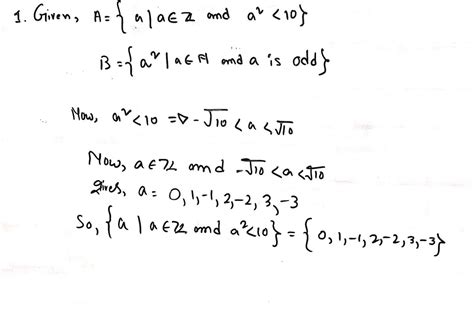 1. Given, A = { a | a ∈ ℤ and a² < 10 }
B = { a² | a ∈ ℕ and a is odd }
Now, a² < 10 ⇒ -√10 < a < √10
Now, a ∈ ℤ and -√10 < a < √10
gives, a = 0, 1, -1, 2, -2, 3, -3
So, { a | a ∈ ℤ and a² < 10 } = { 0, 1, -1, 2, -2, 3, -3 }